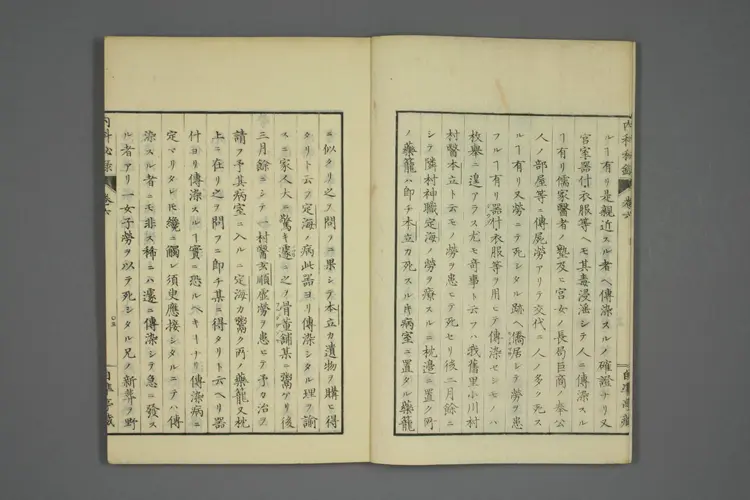 ルヿ有リ是親近スル者ヘ傳染スルノ確證ナリ又
官家器什衣服等ヘモ其毒浸淫シテ人ニ傳染スル
ヿ有リ儒家醫者ノ塾及ニ宮女ノ長局巨商ノ奉公
人ノ部屋等ニ傳屍勞アリテ交代ニ人ノ多ク死ス
フルヿ有リ又勞ニテ死シタル跡ヘ僑居シテ勞ヲ患
フルヿ有リ器什衣服等ヲ用ヒテ傳染セシモノハ
枚舉ニ遑アラス尤モ奇事ト云フハ我舊里小川村
村醫本立ト云モノ勞ヲ患ヒテ死セリ後二月餘ニ
シテ隣村神職定海ノ勞ヲ療スルニ枕邉ニ置ク所
ノ藥籠ハ即チ本立カ死スル片病室ニ置タル藥籠
内科秘錄
卷六
自準亭藏
ニ似タリ之ヲ問フニ果シテ本立カ遺物ヲ購ヒ得
タリト云フ定海ノ病此器ヨリ傳染シタル理ヲ諭
スニ家人大ニ驚キ遽ニ之ヲ骨董鋪某ニ鬻ケリ後
三月餘ニシテ一村醫玄順虛勞ヲ患ヒテ予カ治ヲ
請フ予其病室ニ入ルニ定海カ鬻ク所ノ藥籠又枕
上ニ在リ之ヲ問フニ即チ某ニ得タリト云ヘリ器
什ヨリ傳染スルヿ實ニ恐ルヘキヿナリ傳染病ニ
定マリタレ𪜈纔ニ觸レ須臾應接シタルニテハ傳
染スル者ニモ非ス稀ニハ遽ニ傳染シテ急ニ發ス
ル者アリ一女子勞ヲ以テ死シタル兄ノ新葬ヲ野
内科秘錄
卷六
自準亭藏